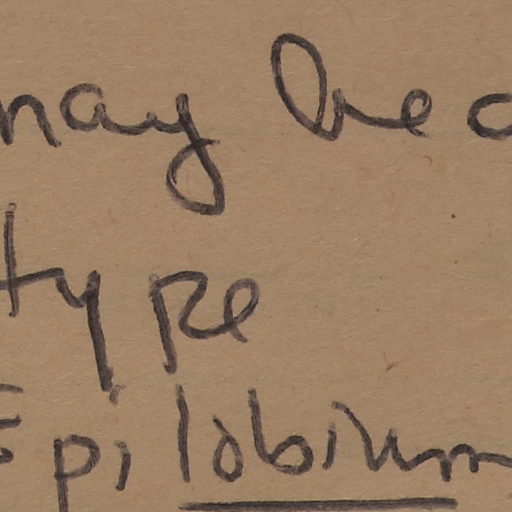 may be a
type
Epilobium